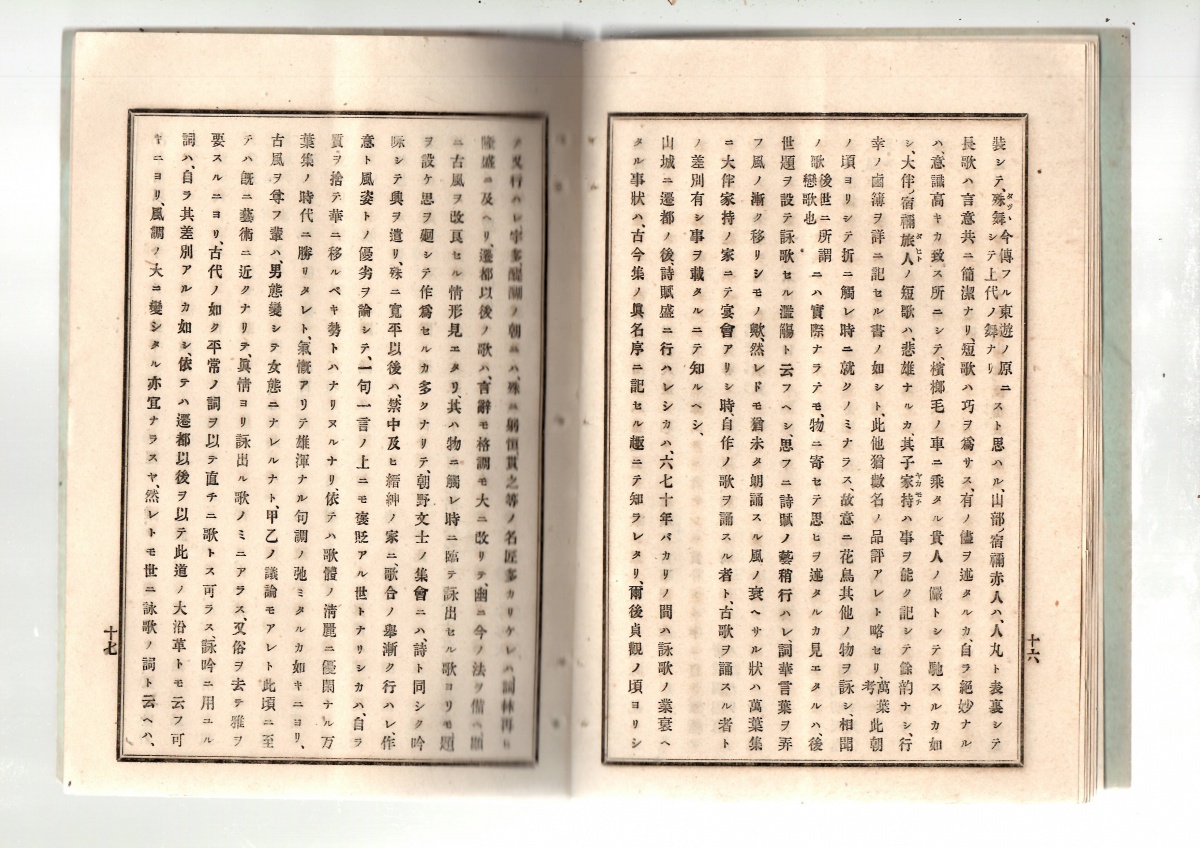 裝シテ、殊舞(タツヽ)今傳フル東遊ノ原ニシテ上代ノ舞ナリスト思ハル、山部ノ宿禰赤人ハ、人丸ト表裏シテ
長歌ハ言意共ニ簡潔ナリ、短歌ハ巧ヲ爲サス、有ノ儘ヲ述タルカ、自ラ絕妙ナル
ハ、意識高キカ致ス所ニシテ、檳榔毛ノ車ニ乘タル貴人ノ儼トシテ馳スルカ如
シ、大伴ノ宿禰旅人(タヒト)ノ短歌ハ、悲雄ナルカ、其子家持(ヤカモチ)ハ事ヲ能ク記シテ餘韵ナシ、行
幸ノ鹵簿ヲ詳ニ記セル書ノ如シト、此他猶數名ノ品評アレト略セリ、萬葉考此朝
ノ頃ヨリシテ折ニ觸レ時ニ就クノミナラス、故意ニ花鳥其他ノ物ヲ詠シ相聞
ノ歌後世ニ所謂戀歌也ニハ實際ナラテモ、物ニ寄セテ思ヒヲ述タルカ見エタルハ、後
世題ヲ設テ詠歌セル濫觴ト云フヘシ、思フニ詩賦ノ藝稍行ハレ、詞華言葉ヲ弄
フ風ノ漸ク移リシモノ歟、然レドモ猶未タ朗誦スル風ノ衰ヘサル狀ハ萬葉集
ニ大伴家持ノ家ニテ宴會アリシ時、自作ノ歌ヲ誦スル者ト、古歌ヲ誦スル者ト
ノ差別有シ事ヲ載タルニテ知ルヘシ、
山城ニ遷都ノ後、詩賦盛ニ行ハレシカハ、六七十年バカリノ間ハ詠歌ノ業衰ヘ
タル事狀ハ、古今集ノ眞名序ニ記セル趣ニテ知ラレタリ、爾後貞觀ノ頃ヨリシ
十六
テ又行ハレ宇多、醍醐ノ朝ニハ、殊ニ躬恒、貫之等ノ名匠多カリケレハ詞林再ヒ
隆盛ニ及ヘリ、遷都以後ノ歌ハ、言辭モ格調モ大ニ改リテ、幽ニ今ノ法ヲ備ヘ
ニ古風ヲ改良セル情形見エタリ、其ハ物ニ觸レ時ニ臨テ詠出セル歌ヨリモ題
ヲ設ケ思ヲ廻シテ作爲セルカ多クナリテ、朝野文士ノ集會ニハ、詩ト同シク吟
咏シテ興ヲ遣リ、殊ニ寬平以後ハ、禁中及ヒ縉紳ノ家ニ、歌合ノ擧漸ク行ハレ、作
意ト風姿トノ優劣ヲ論シテ、一句一言ノ上ニモ褒貶アル世トナリシカハ、自ラ
質ヲ捨テ華ニ移ルベキ勢トハナリヌルナリ、依テハ歌體ノ淸麗ニ優閑ナル万
葉集ノ時代ニ勝リタレト、氣慨アリテ雄渾ナル句調ノ弛ミタルカ如キニヨリ、
古風ヲ尊フ輩ハ、男態變シテ女態ニナレルナト、甲乙ノ議論モアレト此頃ニ至
テハ既ニ藝術ニ近クナリテ、眞情ヨリ詠出ル歌ノミニアラス、又俗ヲ去テ雅ヲ
要スルニヨリ、古代ノ如ク平常ノ詞ヲ以テ直チニ歌トス可ラス、詠吟ニ用ユル
詞ハ、自ラ其差別アルカ如シ、依テハ遷都以後ヲ以テ此道ノ大沿革トモ云フ可
キニヨリ、風調ノ大ニ變シタル亦宜ナラスヤ、然レトモ世ニ詠歌ノ詞ト云ヘハ、
十七